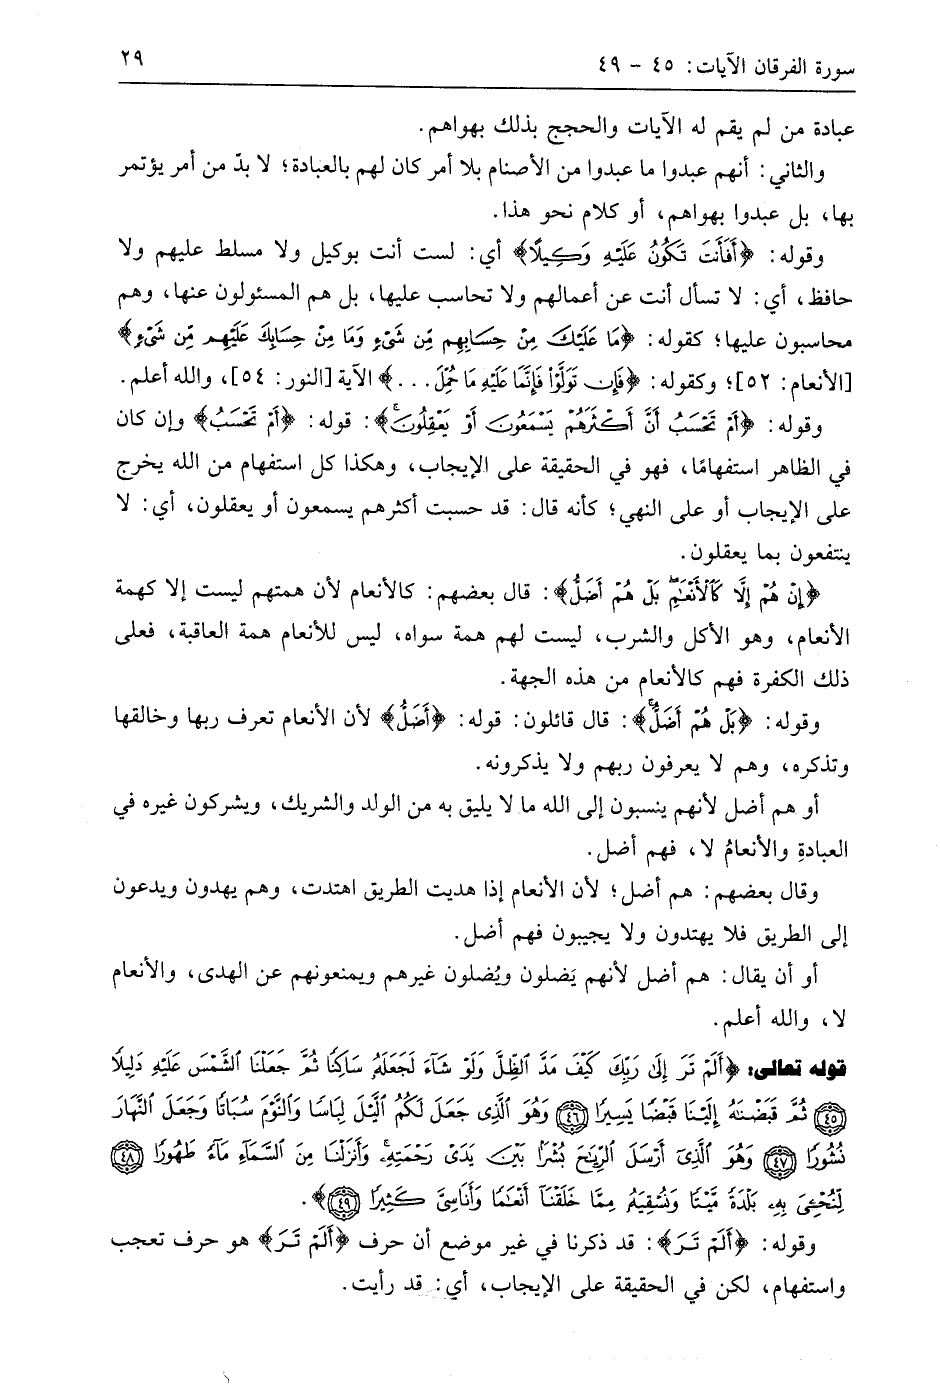 سورة الفرقان الآيات: ٤٥ - ٤٩
٢٩
عبادة من لم يقم له الآيات والحجج بذلك بهواهم.
والثاني: أنهم عبدوا ما عبدوا من الأصنام بلا أمر كان لهم بالعبادة؛ لا بدّ من أمر يؤتمر
بها، بل عبدوا بهواهم، أو كلام نحو هذا.
وقوله: ﴿أَفَأَنتَ تَكُونُ عَلَيْهِ وَكِيلًا﴾ أي: لست أنت بوكيل ولا مسلط عليهم ولا
حافظ، أي: لا تسأل أنت عن أعمالهم ولا تحاسب عليها، بل هم المسئولون عنها، وهم
محاسبون عليها؛ كقوله: ﴿مَا عَلَيْكَ مِنْ حِسَابِهِم مِّن شَىْءٍ وَمَا مِنْ حِسَابِكَ عَلَيْهِم مِّن شَىْءٍ﴾
[الأنعام: ٥٢]؛ وكقوله: ﴿فَإِن تَوَلَّوْا۟ فَإِنَّمَا عَلَيْهِ مَا حُمِّلَ...﴾ الآية [النور: ٥٤]، والله أعلم.
وقوله: ﴿أَمْ تَحْسَبُ أَنَّ أَكْثَرَهُمْ يَسْمَعُونَ أَوْ يَعْقِلُونَۚ﴾: قوله: ﴿أَمْ تَحْسَبُ﴾ وإن كان
في الظاهر استفهامًا، فهو في الحقيقة على الإيجاب، وهكذا كل استفهام من الله يخرج
على الإيجاب أو على النهي؛ كأنه قال: قد حسبت أكثرهم يسمعون أو يعقلون، أي: لا
ينتفعون بما يعقلون.
﴿إِنْ هُمْ إِلَّا كَٱلْأَنْعَٰمِۖ بَلْ هُمْ أَضَلُّ﴾: قال بعضهم: كالأنعام لأن همتهم ليست إلا كهمة
الأنعام، وهو الأكل والشرب، ليست لهم همة سواه، ليس للأنعام همة العاقبة، فعلى
ذلك الكفرة فهم كالأنعام من هذه الجهة.
وقوله: ﴿بَلْ هُمْ أَضَلُّۚ﴾: قال قائلون: قوله: ﴿أَضَلُّ﴾ لأن الأنعام تعرف ربها وخالقها
وتذكره، وهم لا يعرفون ربهم ولا يذكرونه.
أو هم أضل لأنهم ينسبون إلى الله ما لا يليق به من الولد والشريك، ويشركون غيره في
العبادةِ والأنعامُ لا، فهم أضل.
وقال بعضهم: هم أضل؛ لأن الأنعام إذا هديت الطريق اهتدت، وهم يهدون ويدعون
إلى الطريق فلا يهتدون ولا يجيبون فهم أضل.
أو أن يقال: هم أضل لأنهم يَضلون ويُضلون غيرهم ويمنعونهم عن الهدى، والأنعام
لا، والله أعلم.
قوله تعالى: ﴿أَلَمْ تَرَ إِلَىٰ رَبِّكَ كَيْفَ مَدَّ ٱلظِّلَّ وَلَوْ شَآءَ لَجَعَلَهُۥ سَاكِنًا ثُمَّ جَعَلْنَا ٱلشَّمْسَ عَلَيْهِ دَلِيلًا
٤٥ ثُمَّ قَبَضْنَٰهُ إِلَيْنَا قَبْضًا يَسِيرًا ٤٦ وَهُوَ ٱلَّذِى جَعَلَ لَكُمُ ٱلَّيْلَ لِبَاسًا وَٱلنَّوْمَ سُبَاتًا وَجَعَلَ ٱلنَّهَارَ
نُشُورًا ٤٧ وَهُوَ ٱلَّذِىٓ أَرْسَلَ ٱلرِّيَٰحَ بُشْرًۢا بَيْنَ يَدَىْ رَحْمَتِهِۦۚ وَأَنزَلْنَا مِنَ ٱلسَّمَآءِ مَآءً طَهُورًا ٤٨
لِّنُحْـِۧىَ بِهِۦ بَلْدَةً مَّيْتًا وَنُسْقِيَهُۥ مِمَّا خَلَقْنَآ أَنْعَٰمًا وَأَنَاسِىَّ كَثِيرًا ٤٩﴾.
وقوله: ﴿أَلَمْ تَرَ﴾: قد ذكرنا في غير موضع أن حرف ﴿أَلَمْ تَرَ﴾ هو حرف تعجب
واستفهام، لكن في الحقيقة على الإيجاب، أي: قد رأيت.